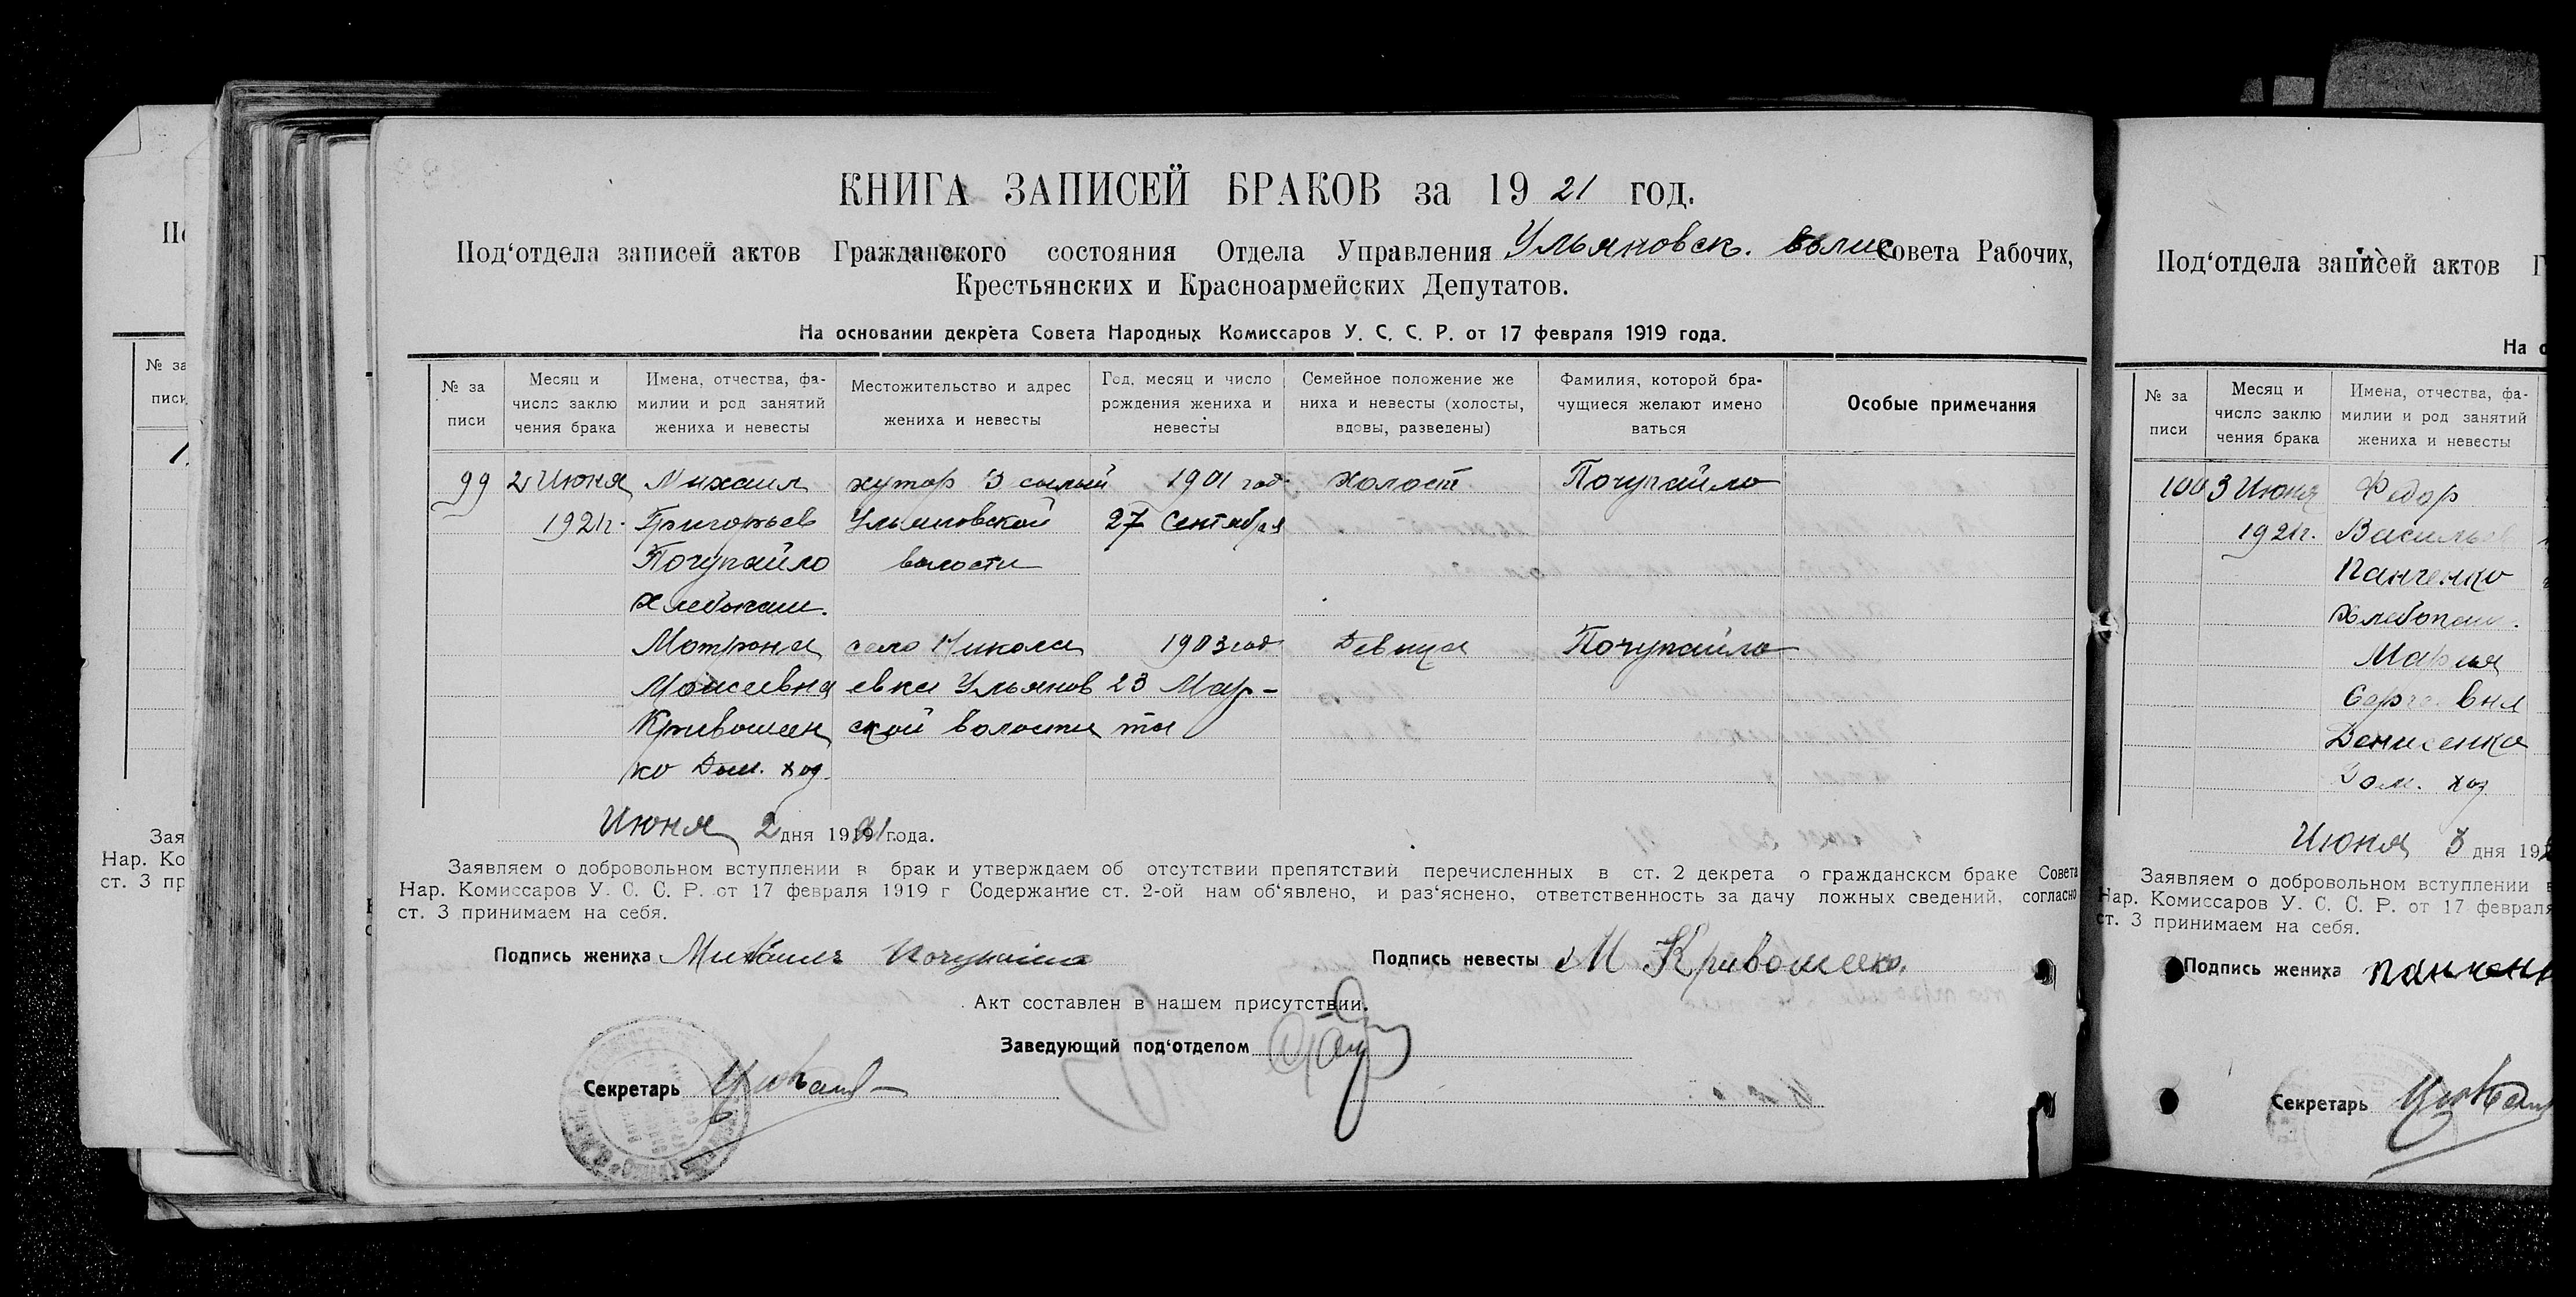 КНИГА ЗАПИСЕЙ БРАКОВ за 19 21 год.
Под‘отдела записей актов Гражданского состояния Отдела Управления Ульяновск. волис Совета Рабочих,
Крестьянских и Красноармейских Депутатов.
На основании декрета Совета Народных Комиссаров У. С. С. Р. от 17 февраля 1919 года.
№ за
писи
Месяц и
число заклю
чения брака
Имена, отчества, фа-
милии и род занятий
жениха и невесты
Местожительство и адрес
жениха и невесты
Год, месяц и число
рождения жениха и
невесты
Семейное положение же
ниха и невесты (холосты,
вдовы, разведены)
Фамилия, которой бра-
чущиеся желают имено
ваться
Особые примечания
99 2 Июня Михаил хутор 3 сотый 1901 год Холост Почупайло
1921г. Григорьев Ульяновской 27 Сентября
Почупайло волости
Хлебопаш.
Мотрона село Никола 1903 год Девица Почупайло
Моисеевна евка Ульянов 23 Мар-
Кривошеен ской волости та
ко Дом. хоз.
Июня 2 дня 1921 года.
Заявляем о добровольном вступлении в брак и утверждаем об отсутствии препятствий перечисленных в ст. 2 декрета о гражданском браке Совета
Нар. Комиссаров У. С. С. Р. от 17 февраля 1919 г Содержание ст. 2-ой нам об‘явлено, и раз‘яснено, ответственность за дачу ложных сведений, согласно
ст. 3 принимаем на себя.
Подпись жениха Михаилъ Почупайло Подпись невесты М Кривошеко.
Акт составлен в нашем присутствии.
Заведующий под‘отделом
Секретарь
№ за
писи
1
Зая
Нар. Ко
ст. 3 пр
Под‘отдела записей актов Г
На о
№ за
писи
Месяц и
число заклю
чения брака
Имена, отчества, фа-
милии и род занятий
жениха и невесты
100 3 Июня Федор
1921г. Васильев
Панченко
Хлебопаш.
Мария
Серге вна
Денисенко
Дом. хоз
Июня 3 дня 192
Заявляем о добровольном вступлении в
Нар. Комиссаров У. С. С. Р. от 17 февраля
ст. 3 принимаем на себя.
Подпись жениха панчен
Секретарь